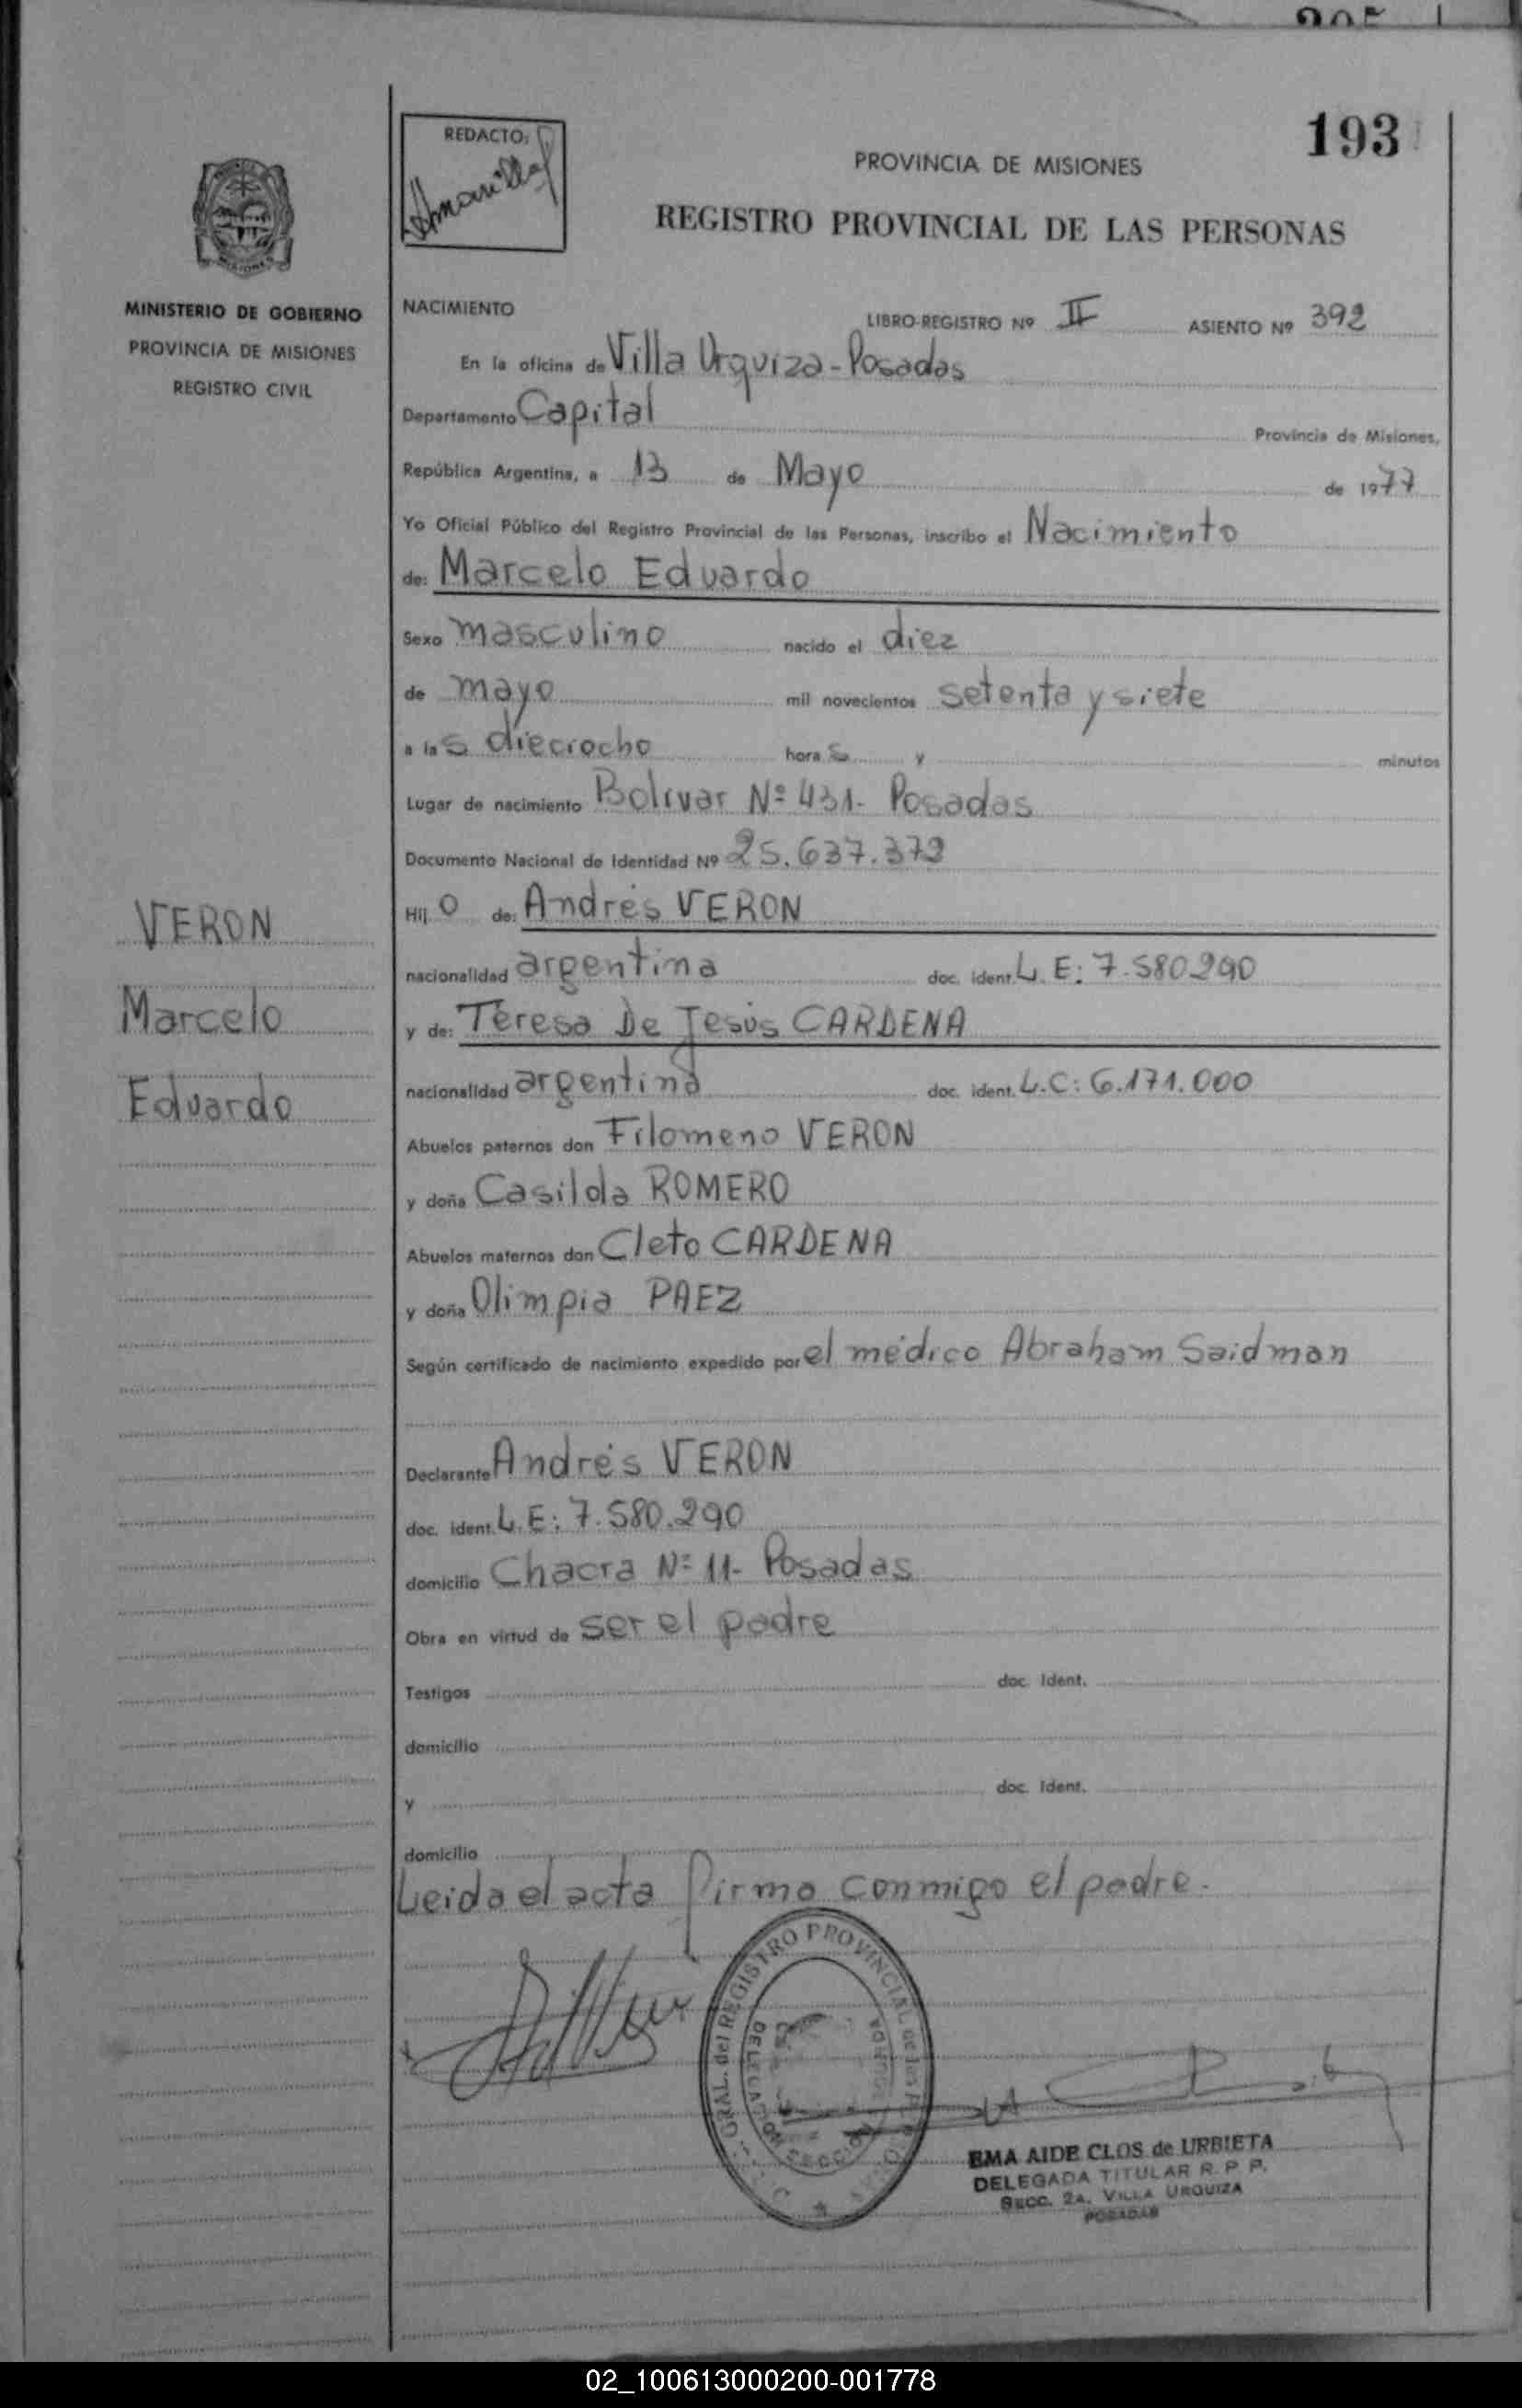 193
REDACTO:
PROVINCIA DE MISIONES
REGISTRO PROVINCIAL DE LAS PERSONAS
MISIONES
MINISTERIO DE GOBIERNO
PROVINCIA DE MISIONES
REGISTRO CIVIL
NACIMIENTO LIBRO-REGISTRO Nº II ASIENTO Nº 392
En la oficina de Villa Urquiza - Posadas
Departamento Capital Provincia de Misiones,
República Argentina, a 13 de Mayo de 1977
Yo Oficial Público del Registro Provincial de las Personas, inscribo el Nacimiento
de: Marcelo Eduardo
Sexo masculino nacido el diez
de mayo mil novecientos setenta y siete
a las dieciocho horas y minutos
Lugar de nacimiento Bolívar Nº 431- Posadas
Documento Nacional de Identidad Nº 25.637.372
VERON
Marcelo
Eduardo
Hijo de: Andrés VERON
nacionalidad argentina doc. ident. L.E: 7.580290
y de: Teresa De Jesús CARDENA
nacionalidad argentina doc. ident. L.C: 6.171.000
Abuelos paternos don Filomeno VERON
y doña Casilda ROMERO
Abuelos maternos don Cleto CARDENA
y doña Olimpia PAEZ
Según certificado de nacimiento expedido por el médico Abraham Saidman
Declarante Andrés VERON
doc. ident. L.E: 7.580.290
domicilio Chacra Nº 11- Posadas
Obra en virtud de ser el padre
Testigos doc. Ident.
domicilio
y doc. Ident.
domicilio
Leida el acta firma conmigo el padre.
GRAL. del REGISTRO PROVINCIAL de las
DELEGACION SECCION
EMA AIDE CLOS de URBIETA
DELEGADA TITULAR R. P. P.
SECC. 2A. VILLA URQUIZA
POSADAS
02_100613000200-001778